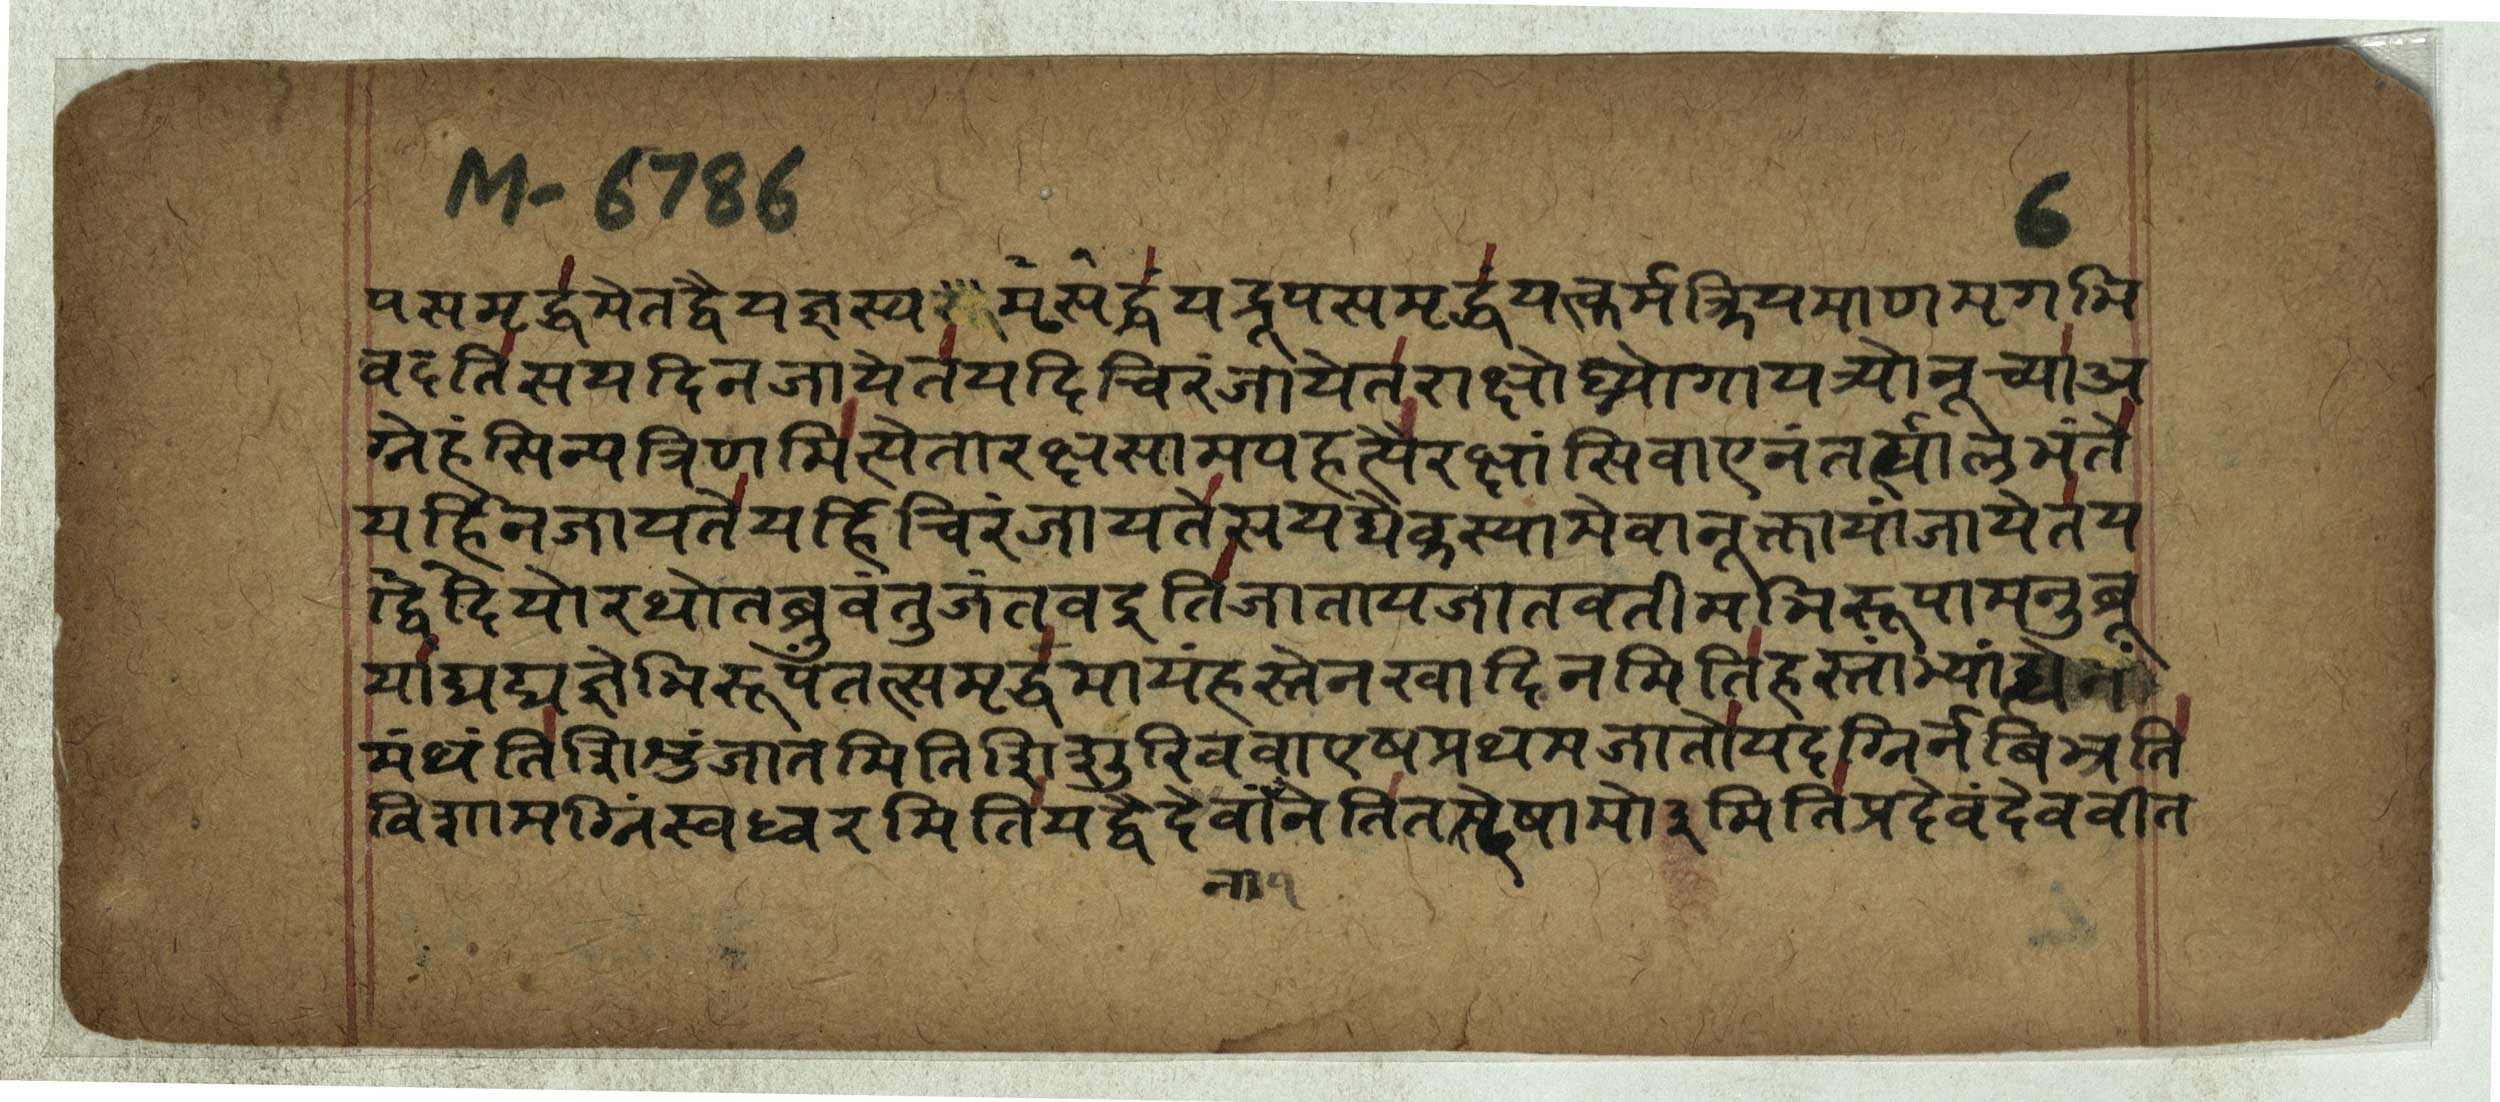 M-6786
6
पसमृद्धमेतद्वैयज्ञस्य मृसंद्धंयद्रूपसमृद्धंयत्कर्मक्रियमाणमृगभि
वदतिसयदिनजायेतयदिचिरंजायेतराक्षोघ्न्योगायत्र्योनूच्याअ
ग्नेहंसिन्यत्रिणमित्येतारक्षसामपहत्यैरक्षांसिवाएनंतर्ह्यालभंते
यर्हिनजायतेयर्हिचिरंजायतेसयद्येकस्यामेवानूक्तायांजायेतय
दिद्वयोरथोतब्रुवंतुजंतवइतिजातायजातवतीमभिरूपामनुब्रू
याद्यद्यज्ञेभिरूपंतत्समृद्धमायंहस्तेनखादिनमितिहस्ताभ्यांह्येनं
मंथंतिशिशुंजातमितिशिशुरिववाएषप्रथमजातोयदग्निर्नबिभ्रति
विशामग्निंस्वध्वरमितियद्वैदेवानांनेतितदेषामो३मितिप्रदेवंदेववीत
ना१